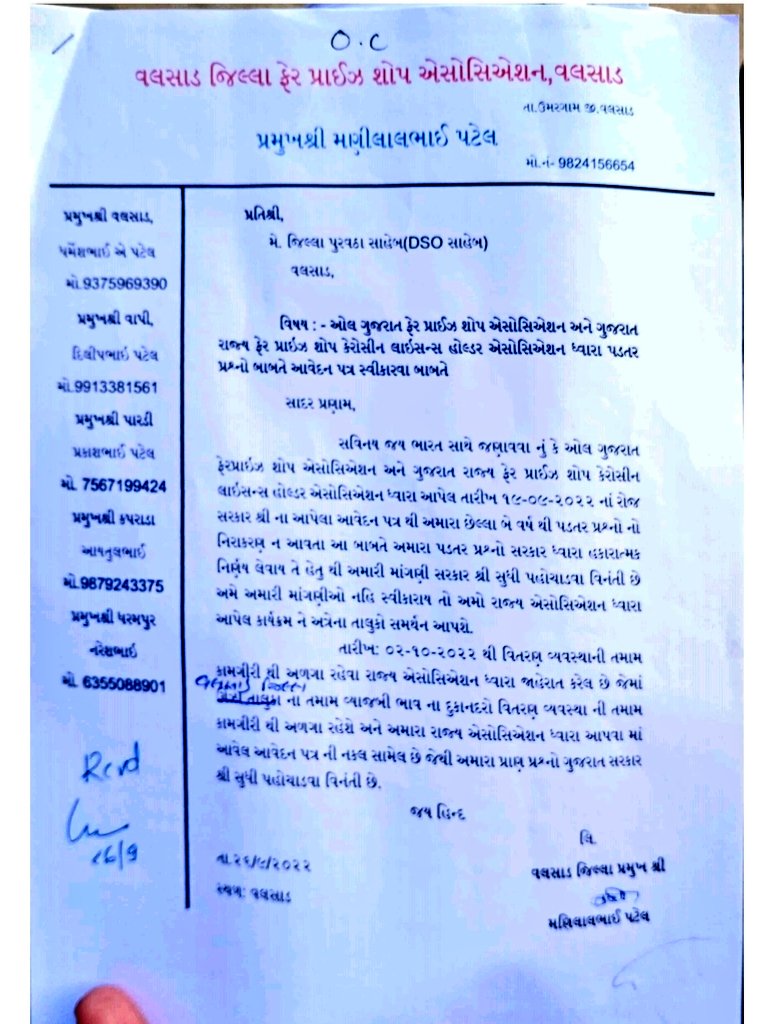 O.C
વલસાડ જિલ્લા ફેર પ્રાઈઝ શોપ એસોસિએશન,વલસાડ
તા.ઉમરગામ જી.વલસાડ
પ્રમુખશ્રી મણીલાલભાઈ પટેલ
મો.નં- 9824156654
પ્રમુખશ્રી વલસાડ,
ધર્મેશભાઈ એ પટેલ
મો.9375969390
પ્રમુખશ્રી વાપી,
દિલીપભાઈ પટેલ
મો.9913381561
પ્રમુખશ્રી પારડી
પ્રકાશભાઈ પટેલ
મો. 7567199424
પ્રમુખશ્રી કપરાડા
આયતુલભાઈ
મો.9879243375
પ્રમુખશ્રી ધરમપુર
નરેશભાઈ
મો. 6355088901
Rcvd
26/9
પ્રતિશ્રી,
મે. જિલ્લા પુરવઠા સાહેબ(DSO સાહેબ)
વલસાડ,
વિષય : - ઓલ ગુજરાત ફેર પ્રાઈઝ શોપ એસોસિએશન અને ગુજરાત
રાજ્ય ફેર પ્રાઈઝ શોપ કેરોસીન લાઇસન્સ હોલ્ડર એસોસિએશન ધ્વારા પડતર
પ્રશ્નો બાબતે આવેદન પત્ર સ્વીકારવા બાબતે
સાદર પ્રણામ,
સવિનય જય ભારત સાથે જણાવવા નું કે ઓલ ગુજરાત
ફેરપ્રાઈઝ શોપ એસોસિએશન અને ગુજરાત રાજ્ય ફેર પ્રાઈઝ શોપ કેરોસીન
લાઇસન્સ હોલ્ડર એસોસિએશન ધ્વારા આપેલ તારીખ ૧૯-૦૯-૨૦૨૨ નાં રોજ
સરકાર શ્રી ના આપેલા આવેદન પત્ર થી અમારા છેલ્લા બે વર્ષ થી પડતર પ્રશ્નો નો
નિરાકરણ ન આવતા આ બાબતે અમારા પડતર પ્રશ્નો સરકાર ધ્વારા હકારાત્મક
નિર્ણય લેવાય તે હેતુ થી અમારી માંગણી સરકાર શ્રી સુધી પહોચાડવા વિનંતી છે
અમે અમારી માંગણીઓ નહિ સ્વીકારાય તો અમો રાજ્ય એસોસિએશન ધ્વારા
આપેલ કાર્યક્રમ ને અત્રેના તાલુકો સમર્થન આપશે.
તારીખ: ૦૨-૧૦-૨૦૨૨ થી વિતરણ વ્યવસ્થાની તમામ
કામગીરી થી અળગા રહેવા રાજ્ય એસોસિએશન ધ્વારા જાહેરાત કરેલ છે જેમાં
વલસાડ જિલ્લા
તાલુકા ના તમામ વ્યાજબી ભાવ ના દુકાનદારો વિતરણ વ્યવસ્થા ની તમામ
કામગીરી થી અળગા રહેશે અને અમારા રાજ્ય એસોસિએશન ધ્વારા આપવા માં
આવેલ આવેદન પત્ર ની નકલ સામેલ છે જેથી અમારા પ્રાણ પ્રશ્નો ગુજરાત સરકાર
શ્રી સુધી પહોચાડવા વિનંતી છે.
જય હિન્દ
લિ.
વલસાડ જિલ્લા પ્રમુખ શ્રી
મણિલાલભાઈ પટેલ
તા.૨૬/૯/૨૦૨૨
સ્થળ: વલસાડ